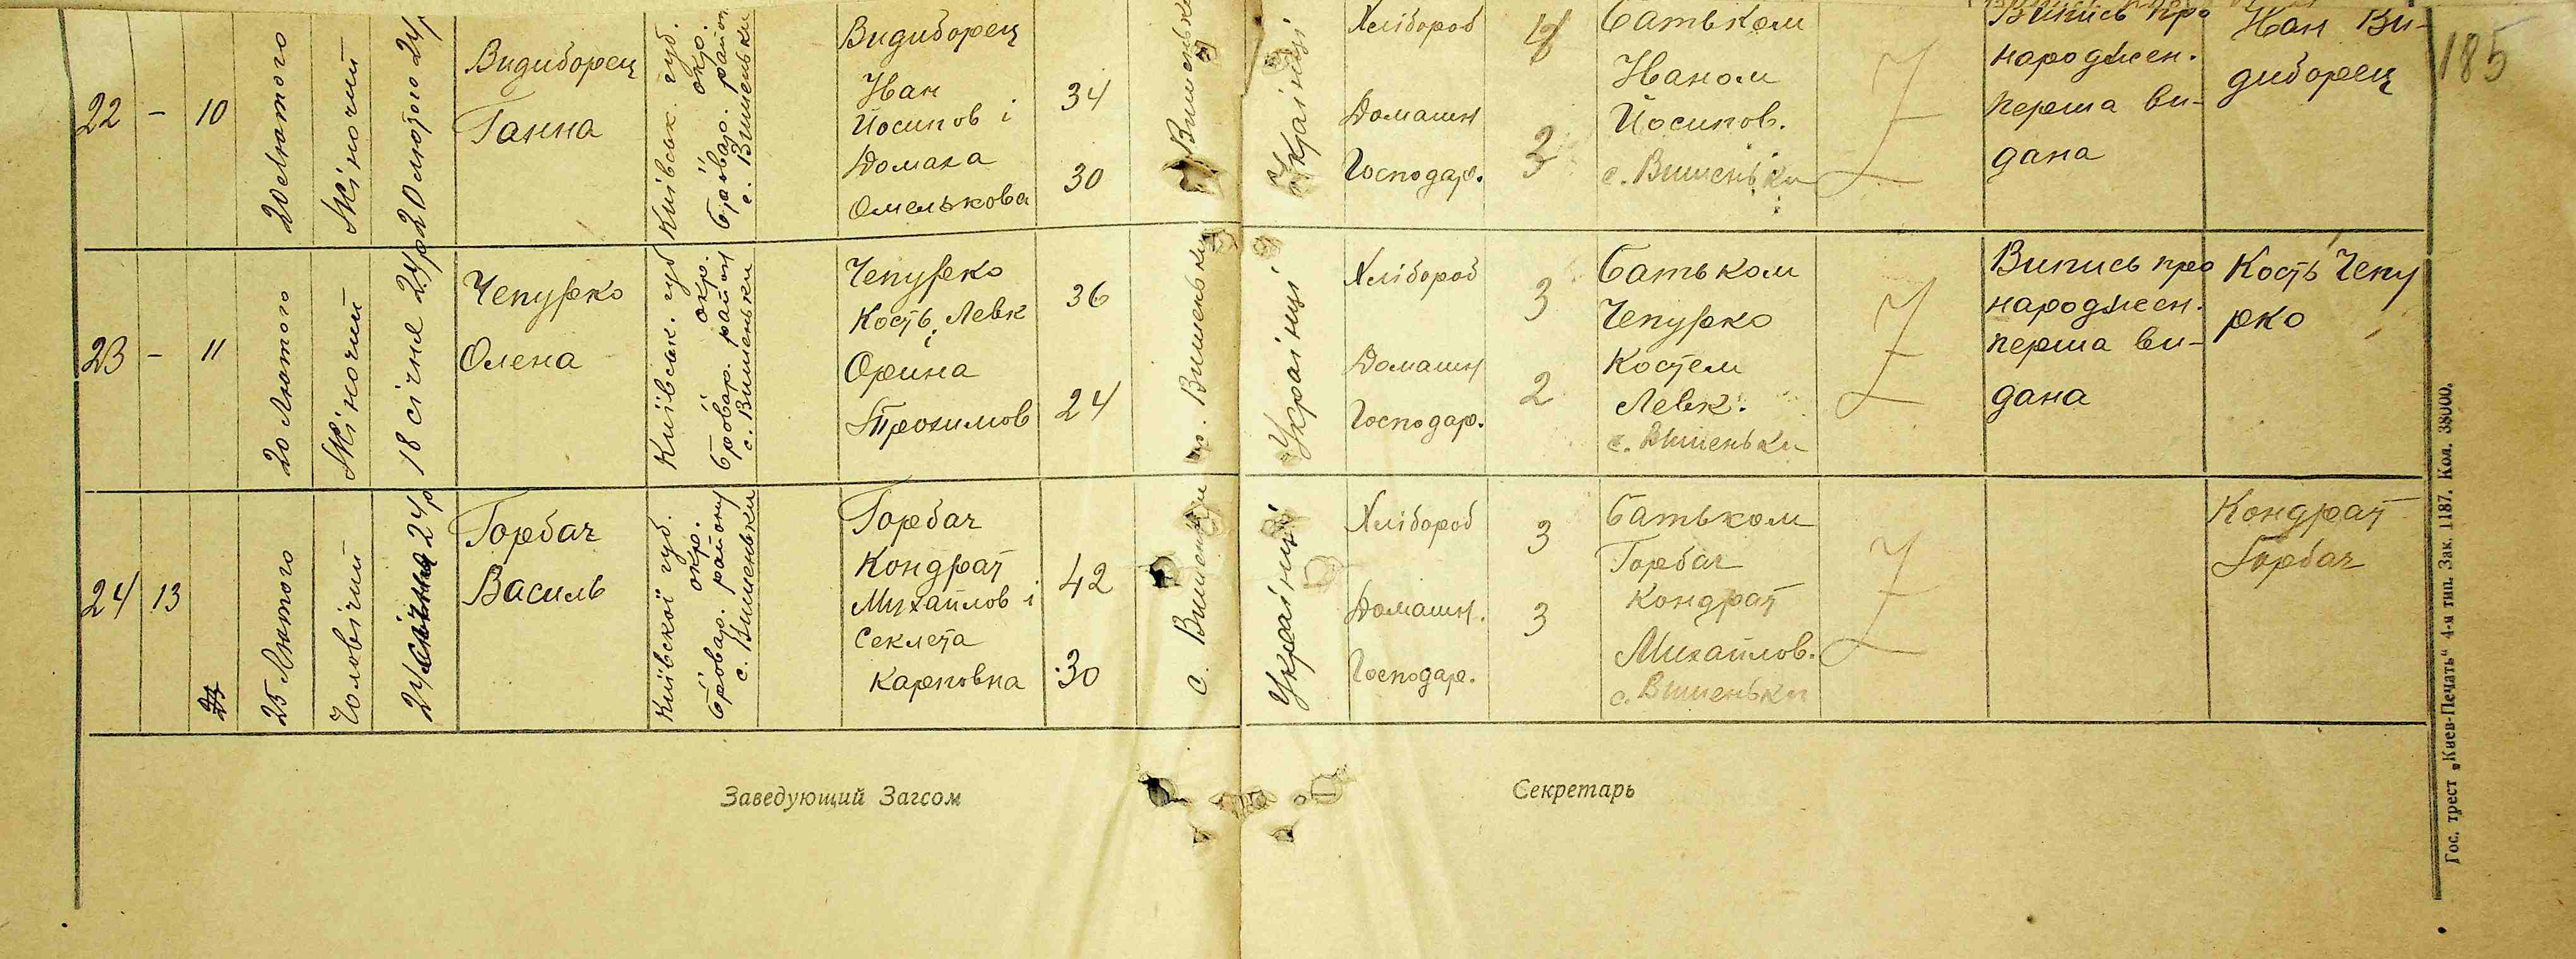 185
22 – 10
20 Лютого
Жіночий
20 лютого 24р
Видиборец
Ганна
Київськ. губ.
окр.
Бровар. район
с. Вишеньки
Видиборец
Иван
Йосипов і
Домаха
Омелькова
34
30
Вишеньки
Українці
Хлібороб
Домашн
Господар.
4
3
Батьком
Иваном
Йосипов.
с. Вишеньки
Z
Випись про
народжен.
перша ви-
дана
Иан Ви-
диборец
23 – 11
20 Лютого
Жіночий
18 січня 24р
Чепурко
Олена
Київськ. губ
окр.
Бровар. район
с. Вишеньки
Чепурко
Кость Левк
і
Орина
Трохимов
36
24
с. Вишеньки
Українці
Хлібороб
Домашн
Господар.
3
2
Батьком
Чепурко
Костем
Левк.
с. Вишеньки
Z
Випись про
народжен.
перша ви-
дана
Кость Чепу
рко
24 13
25 Лютого
Чоловічий
24 січня 24р
Горбач
Василь
Київської губ.
окр.
Бровар. району
с. Вишеньки
Горбач
Кондрат
Михайлов і
Секлета
Карповна
42
30
с. Вишеньки
Українці
Хлібороб
Домашн.
Господар.
3
3
Батьком
Горбач
Кондрат
Михайлов.
с. Вишеньки
Z
Кондрат
Горбач
Заведующий Загсом
Секретарь
Гос. трест „Киев-Печать“ 4-я тип. Зак. 1187. Кол. 38000.